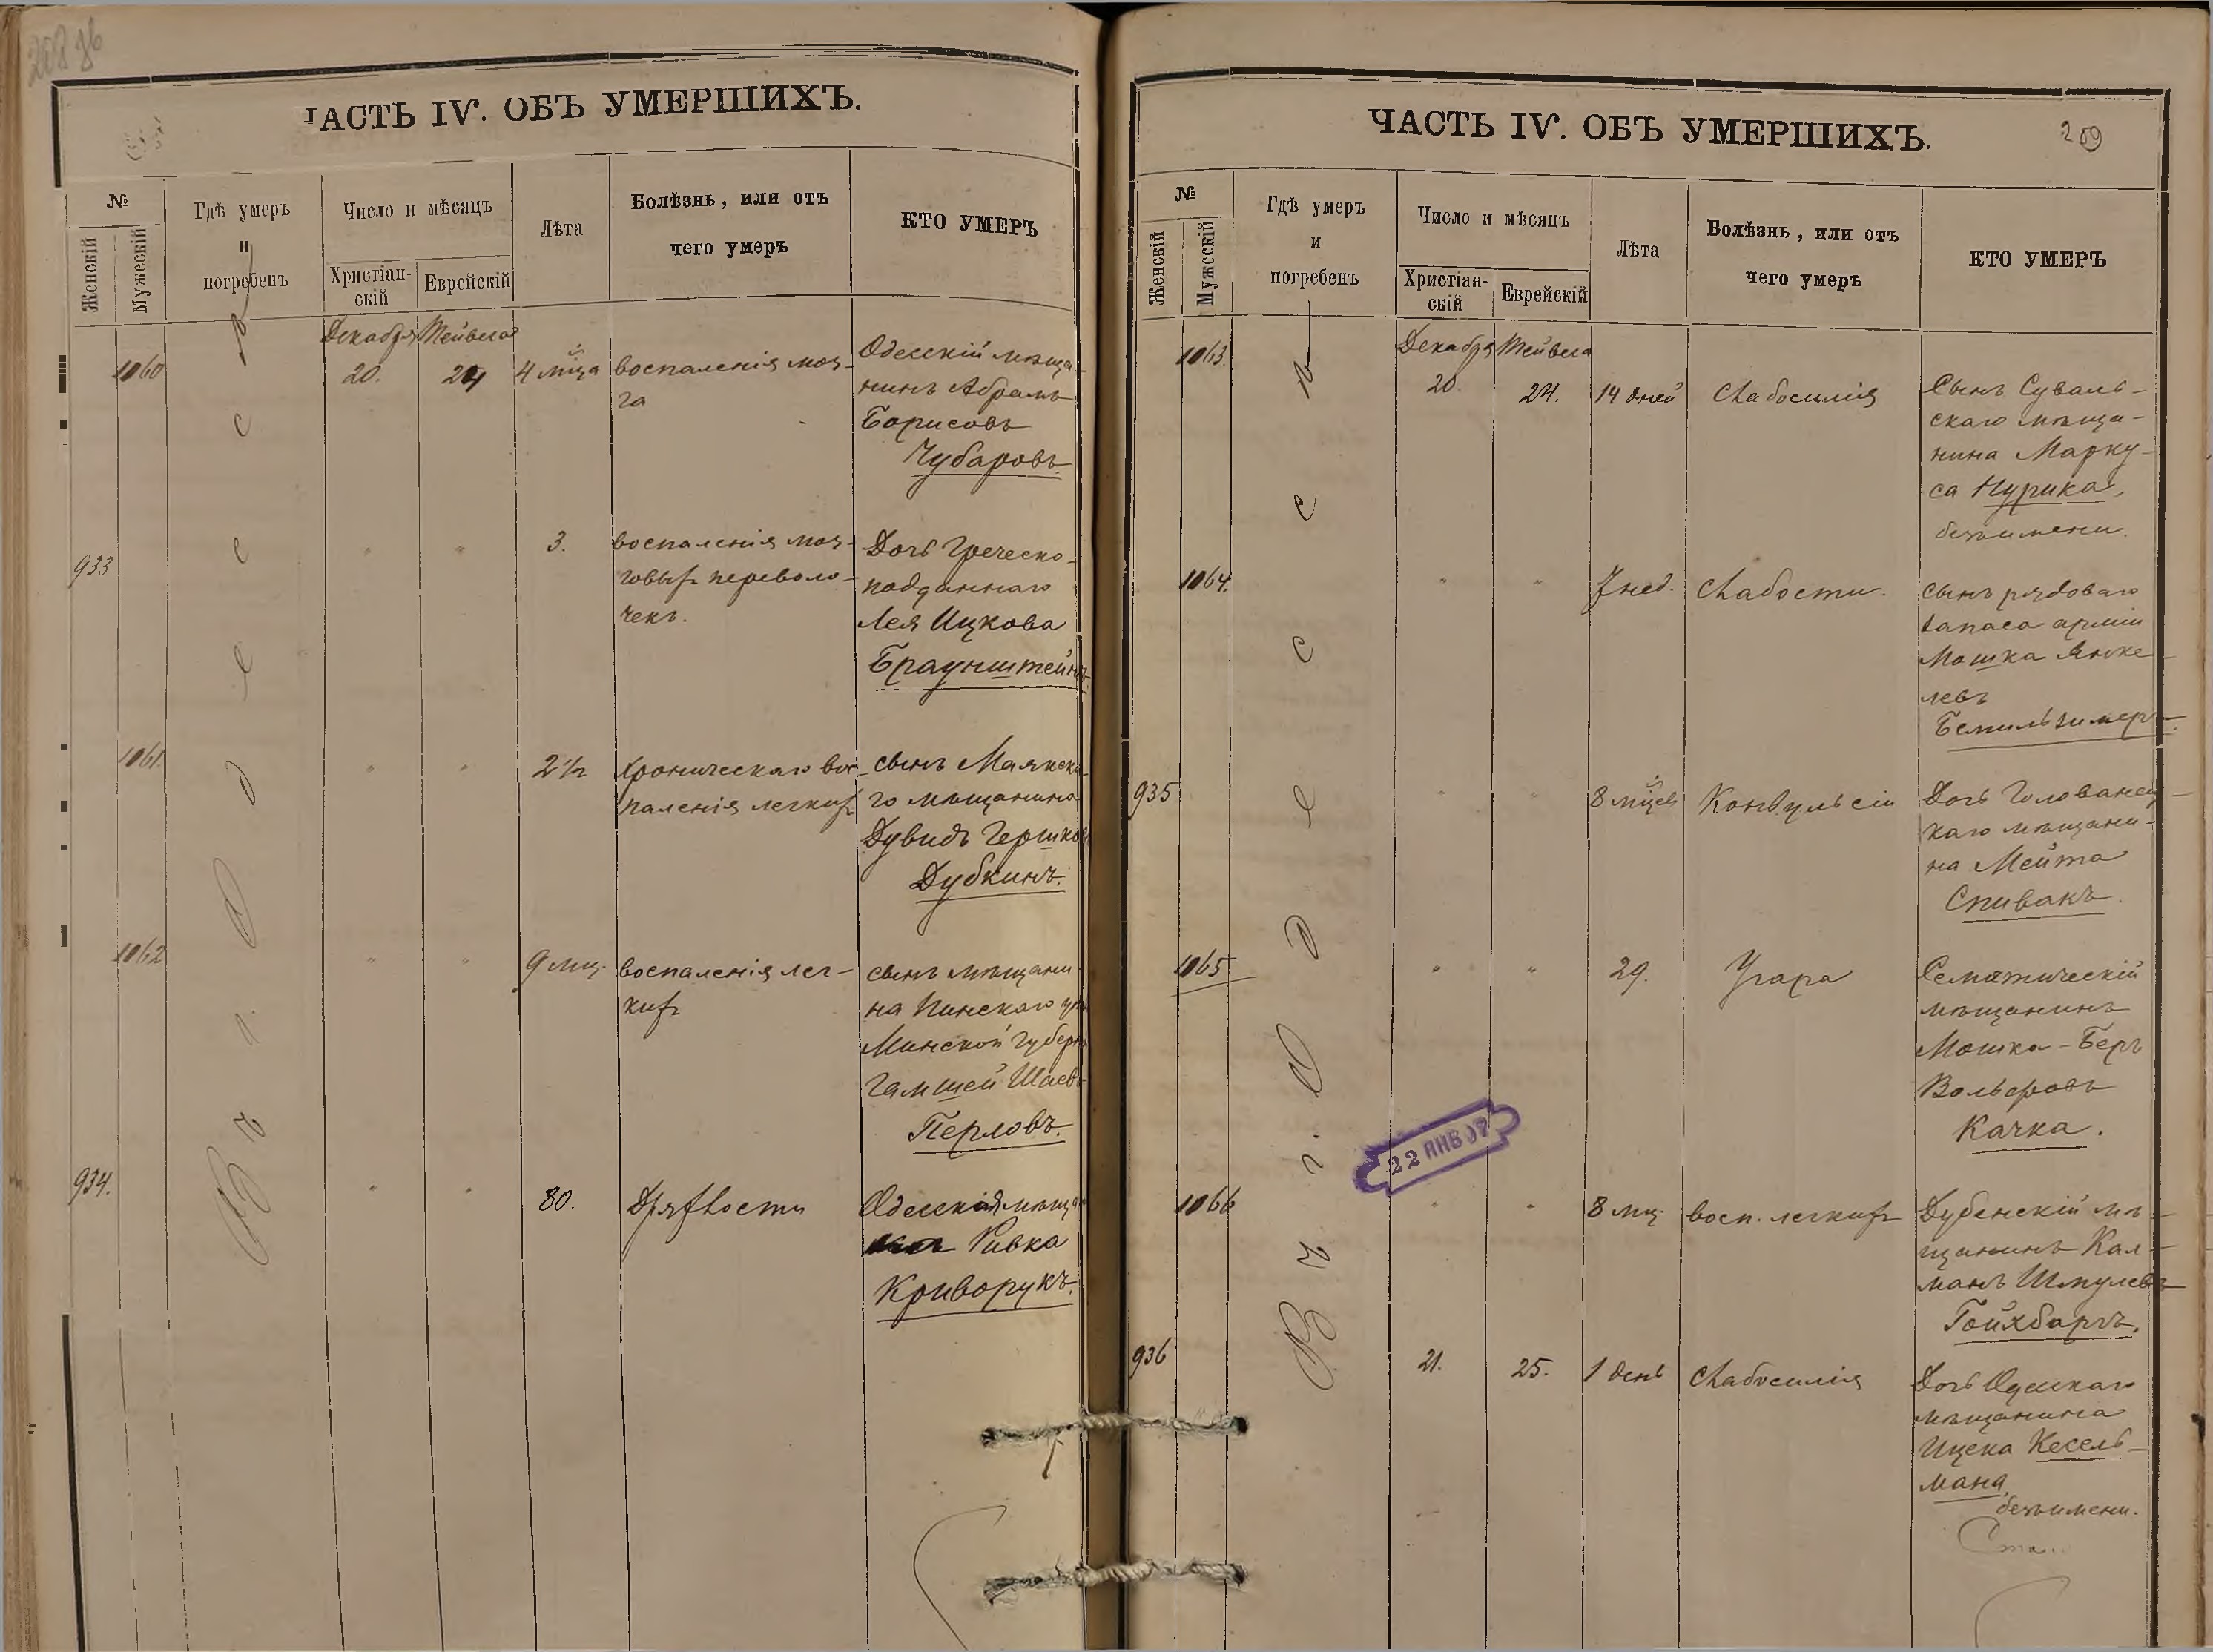 ЧАСТЬ IV. ОБЪ УМЕРШИХЪ.
№
Женскій
Мужескій
Гдѣ умеръ
и
погребенъ
Число и мѣсяцъ
Христіан-
скій
Еврейскій
Лѣта
Болѣзнь, или отъ
чего умеръ
КТО УМЕРЪ
Въ г. Одессѣ
Декабря Тейвеса
1060
20. 24
4 мѣца
воспаленія моз-
га
Одесскій мѣща-
нинъ Абрамъ
Борисовъ
Чубаровъ.
933
" "
3.
воспаленія моз-
говыхъ переволо-
чекъ.
Дочь Греческо-
подданнаго
Лея Ицкова
Браунштейнъ.
1061.
" "
2 ½
хроническаго вос-
паленія легкихъ
сынъ Маякска-
го мѣщанина
Дувидъ Гершковъ
Дубкинъ.
1062
" "
9 мц.
воспаленія лег-
кихъ
сынъ мѣщани-
на Пинскаго
Минской Губерн
Гамшей Шаевъ
Перловъ.
934.
" "
80.
Дряхлости
Одесская мѣщан
Ривка
Криворукъ.
ЧАСТЬ IV. ОБЪ УМЕРШИХЪ.
209
№
Женскій
Мужескій
Гдѣ умеръ
и
погребенъ
Число и мѣсяцъ
Христіан-
скій
Еврейскій
Лѣта
Болѣзнь, или отъ
чего умеръ
КТО УМЕРЪ
Въ г. Одессѣ
Декабря Тейвеса
1063.
20. 24.
14 дней
слабосилія
Сынъ Суваль-
скаго мѣща-
нина Марку-
са Нурика,
безъимени.
1064.
" "
7 нед.
слабости.
сынъ рядоваго
запаса арміи
Мошка Янке-
левъ
935
" "
8 мѣцев
Конвульсіи
Дочь Голованец-
каго мѣщани-
на Мейта
Спивакъ.
1065
" "
29.
Угара
Сематическій
мѣщанинъ
Мошко-Беръ
Вольфовъ
Качка.
22 ЯНВ 07
1066
" "
8 мц.
восп. легкихъ
Дубенскій мѣ-
щанинъ Кал-
манъ Шмулевъ
Гойхбаргъ.
936
21. 25.
1 день
слабосилія
Дочь Одесскаго
мѣщанина
Ицека Кесель-
мана,
безъимени.